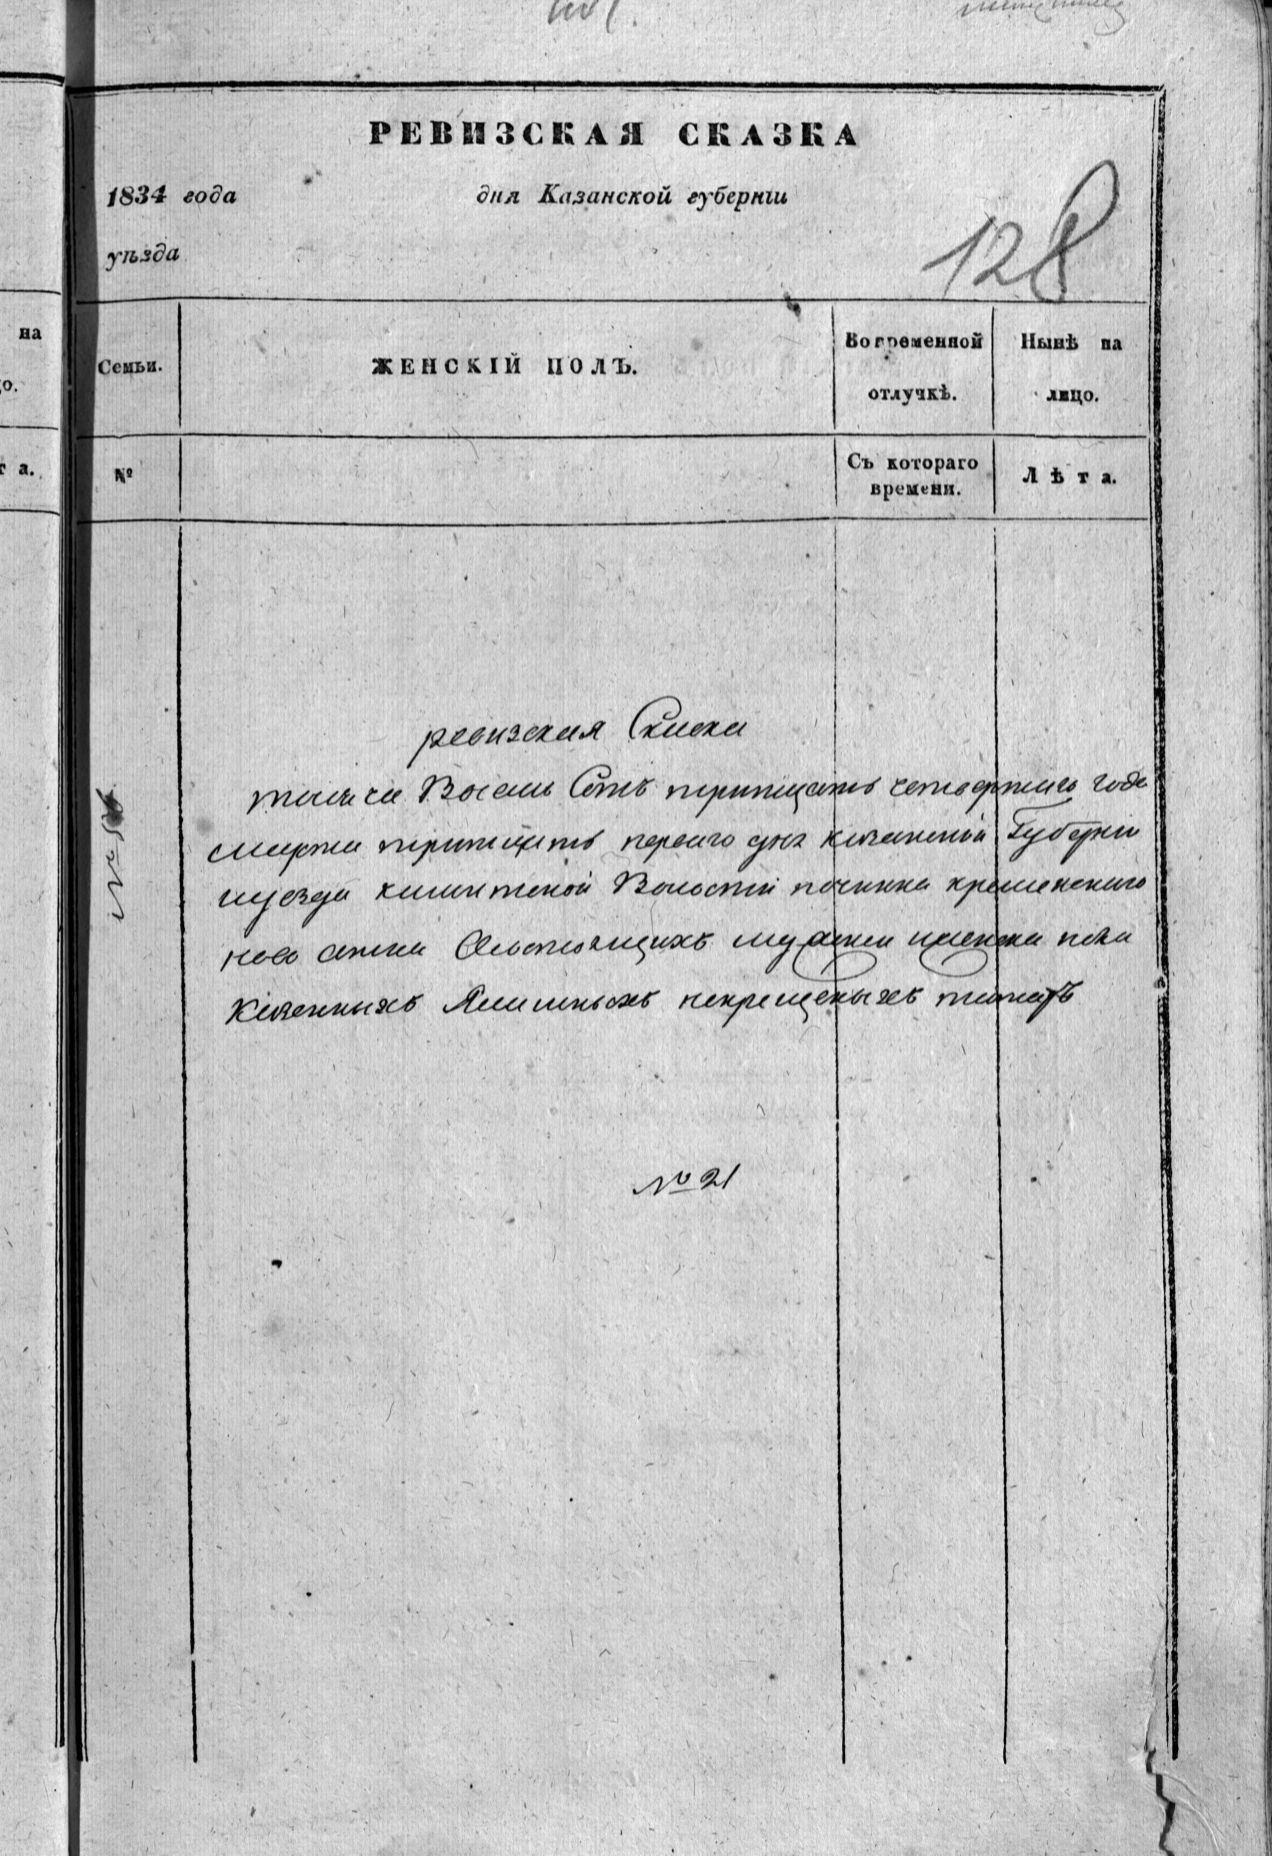 РЕВИЗСКАЯ СКАЗКА
1834 года дня Казанской губерніи
уѣзда
128
на
Семьи.
ЖЕНСКІЙ ПОЛЪ.
Во временной отлучкѣ.
Нынѣ на лицо.
№
Съ котораго времени.
Лѣта.
ревизская Скаска
тысяча Восемь Сотъ тритцать четвертаго года
марта тритцать перваго дня казанской Губерни
уезда Волости починка кременскаго
муженска иженска пола
Казенныхъ некрещеныхъ татаръ
№ 21